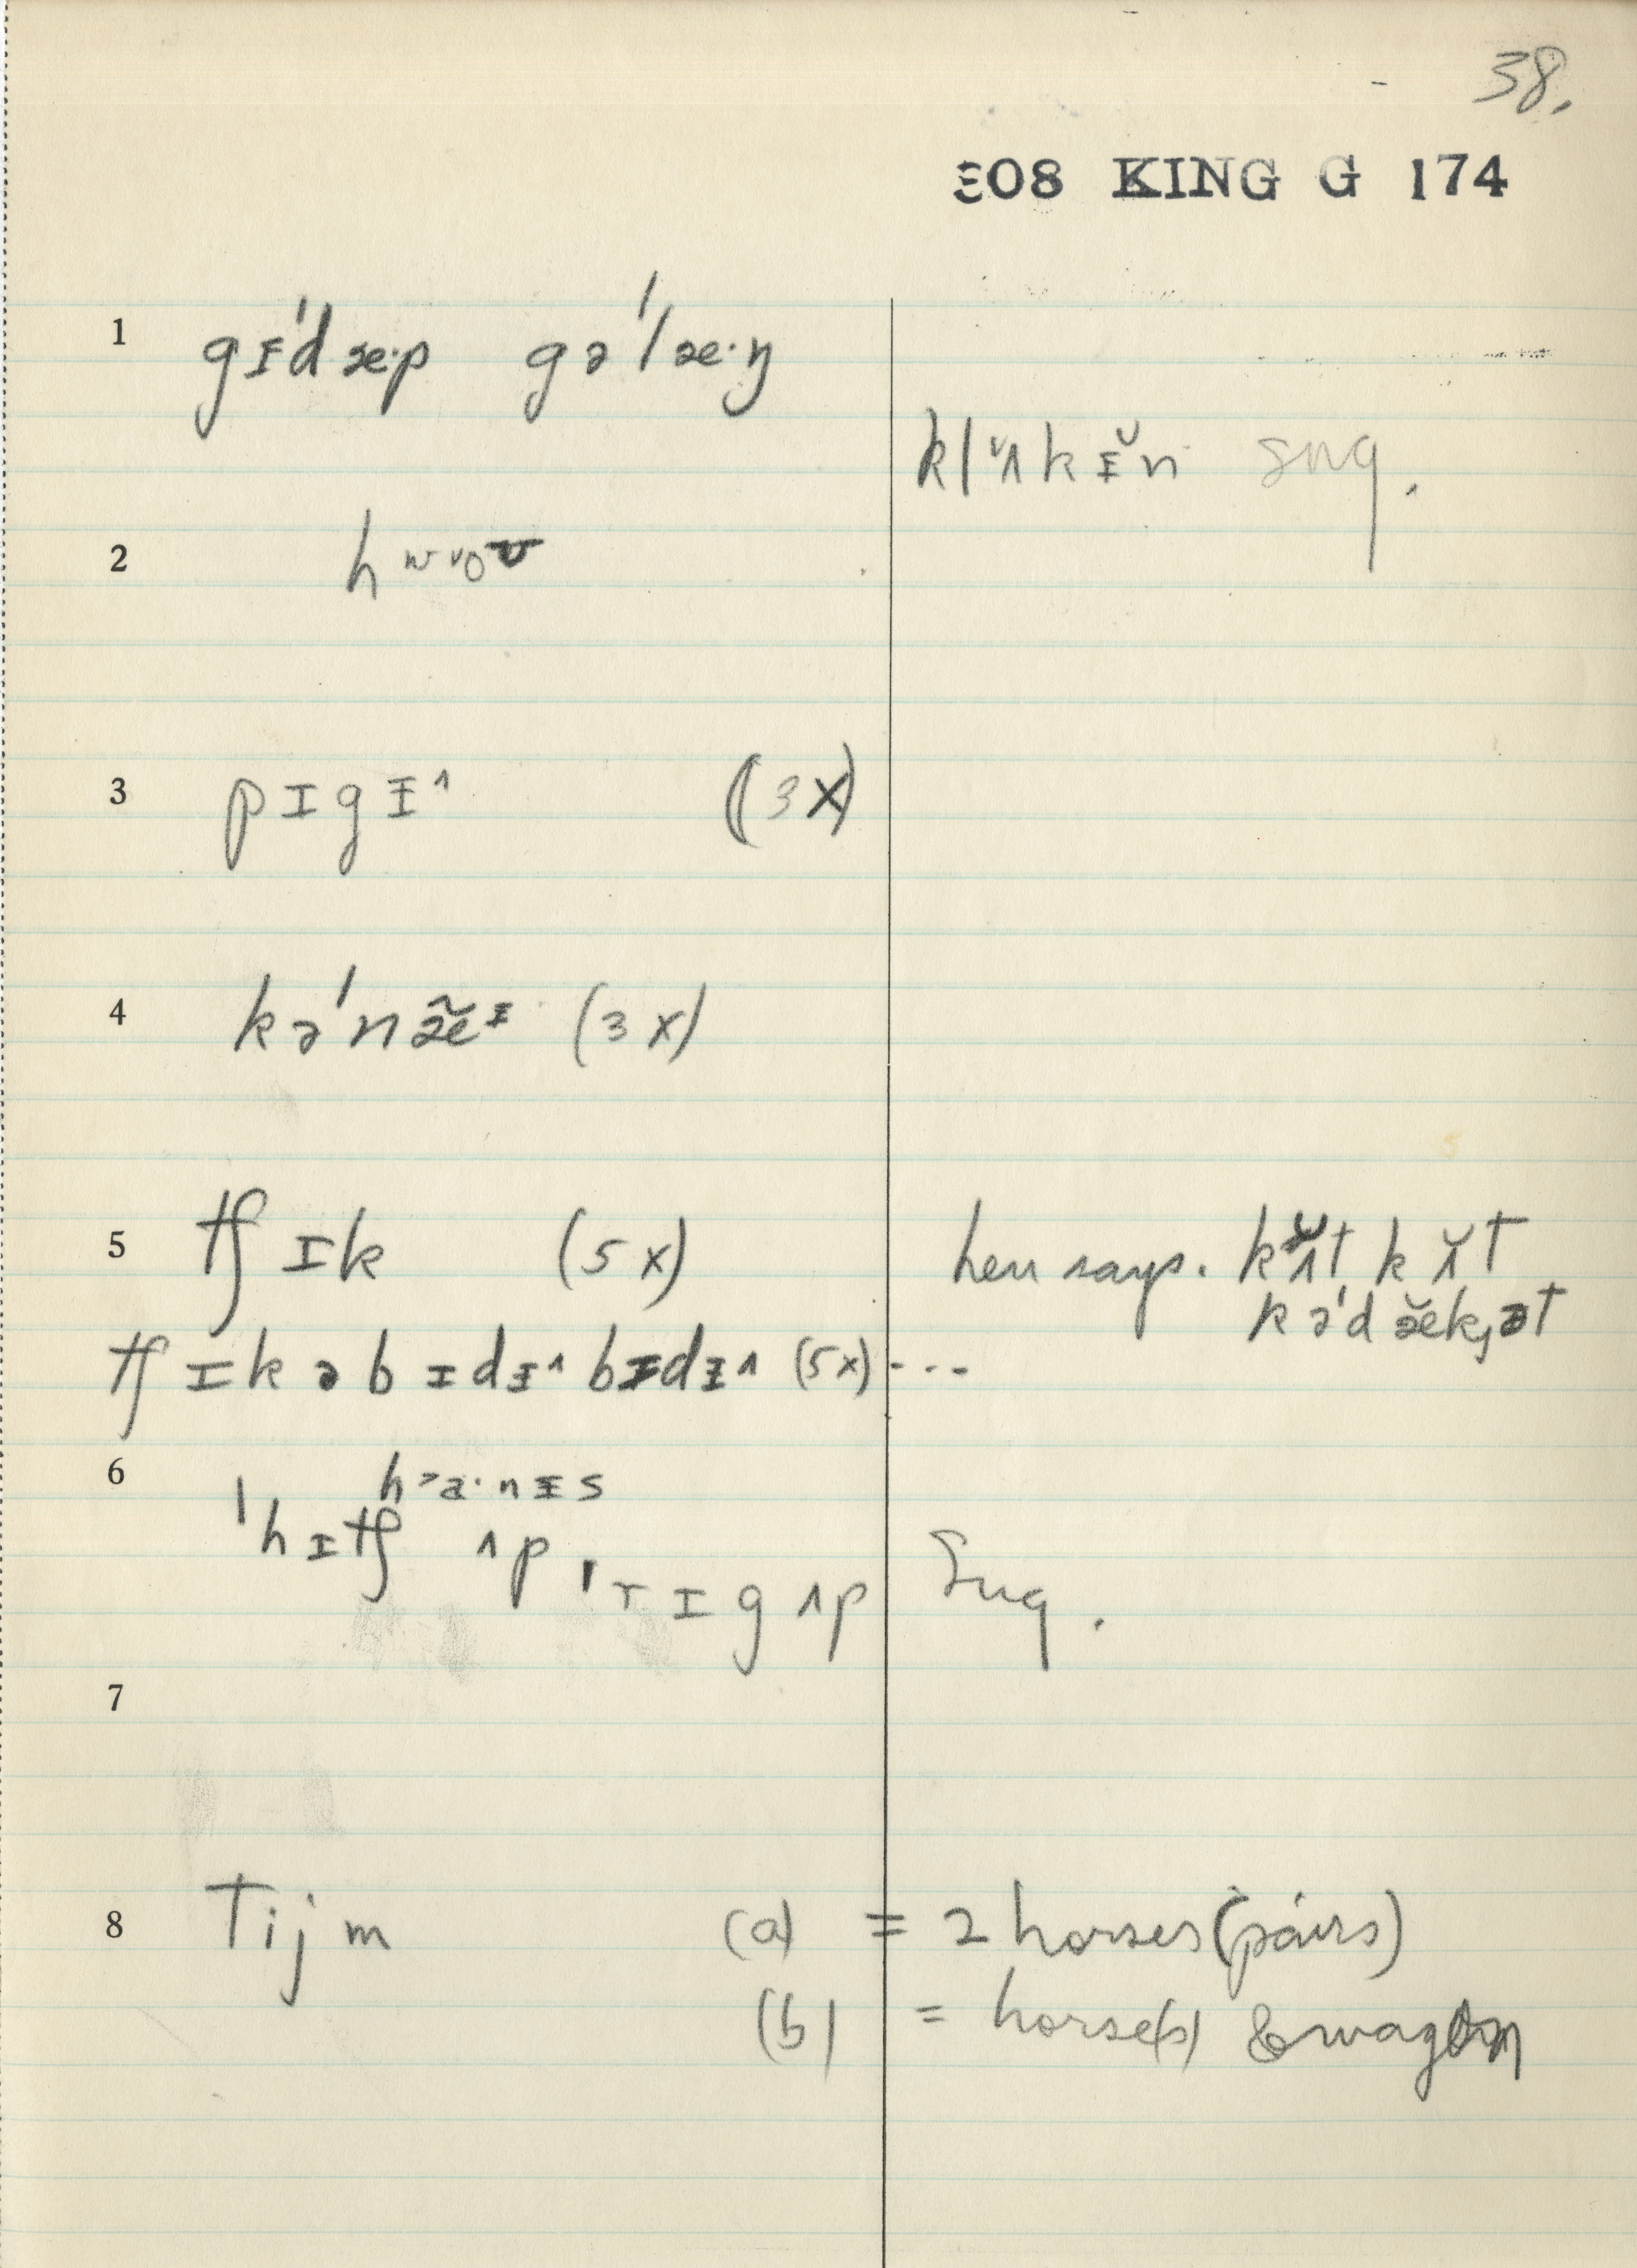 38.
308 KING G 174
1 gɪ̵'dæ·p gə'læ·ŋ
kl ʌ̆ k ɪ̵̆ n sug.
2
3 pɪgɪ̵^ (3x)
4 kə'næ̃ᵻ (3x)
5 tʃɪk (5x) hen says. kʌ̆t kʌ̆t
kə'dæ̆k,ət
tʃɪkəbɪdɪ̵^ bɪdɪ̵^ (5x) ---
6 h>a·nɪ̵s
'hɪtʃ ʌp, 'rɪgʌp Sug.
7
8 Tijm (a) = 2 horses (pairs)
(b) = horse(s) & wagon